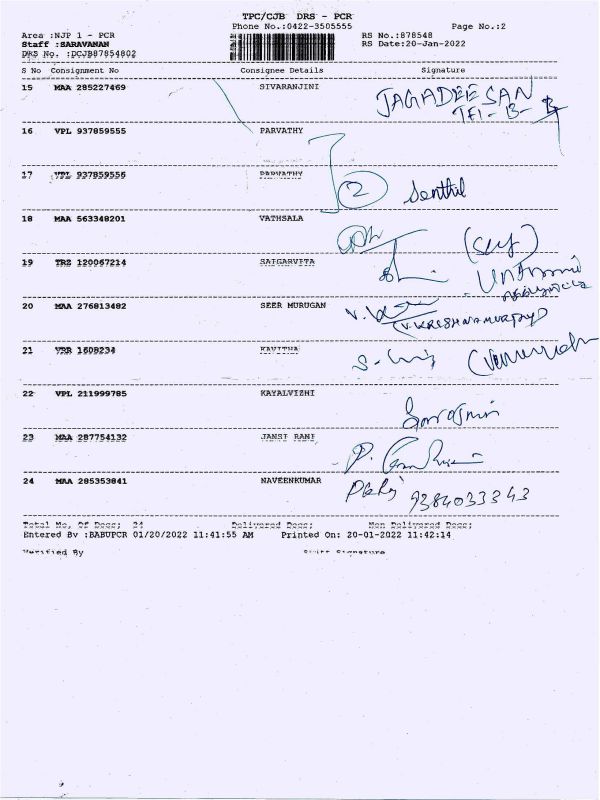 TPC/CJB DRS - PCR
Phone No.:0422-3505555 Page No.:2
Area :NJP 1 - PCR RS No.:878548
Staff :SARAVANAN RS Date:20-Jan-2022
DRS No. :DCJB87854802
S No Consignment No Consignee Details Signature
15 MAA 285227469 SIVARANJINI JAGADEESAN
16 VPL 937859555 PARVATHY
17 VPL 937859556 PARVATHY 2 Senthil
18 MAA 563348201 VATHSALA (Self)
19 TRZ 120067214
20 MAA 276813482 SEER MURUGAN
(V.KRISHNAMURTHY)
21 VRR 1608234 KAVITHA
22 VPL 211999785 KAYALVIZHI
23 MAA 287754132 JANSI RANI
24 MAA 285353841 NAVEENKUMAR 9384033343
Total No. Of Docs: 24 Delivered Docs: Non Delivered Docs:
Entered By :BABUPCR 01/20/2022 11:41:55 AM Printed On: 20-01-2022 11:42:14
Verified By Signature